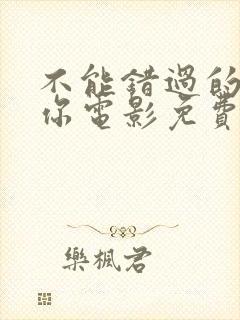 不能錯過的
你電影免費
樂楓君